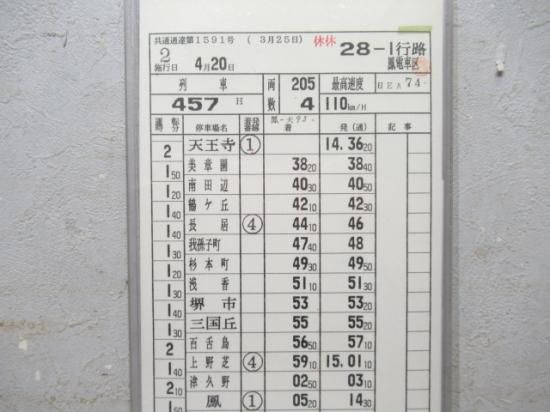 共通通達第1591号 (3月25日) 休休 28-1行路
2
施行日 4月20日 鳳電車区
列車 両 205 最高速度 BEA 74
457H 数 4 110km/H
運転 時分 停車場名 着発番線 着 発(通) 記事
2 天王寺 ① 14.36 20
1 50 美章園 38 20 38 40
1 50 南田辺 40 30 40 50
1 20 鶴ケ丘 42 10 42 30
1 40 長居 ④ 44 10 46
1 40 我孫子町 47 40 48
1 30 杉本町 49 30 49 50
1 20 浅香 51 10 51 30
1 30 堺市 53 53 20
1 40 三国丘 55 55 20
1 30 百舌鳥 56 50 57 10
2 上野芝 ④ 59 10 15.01 10
1 40 津久野 02 50 03 10
2 10 鳳 ① 05 20 14 30
1 50